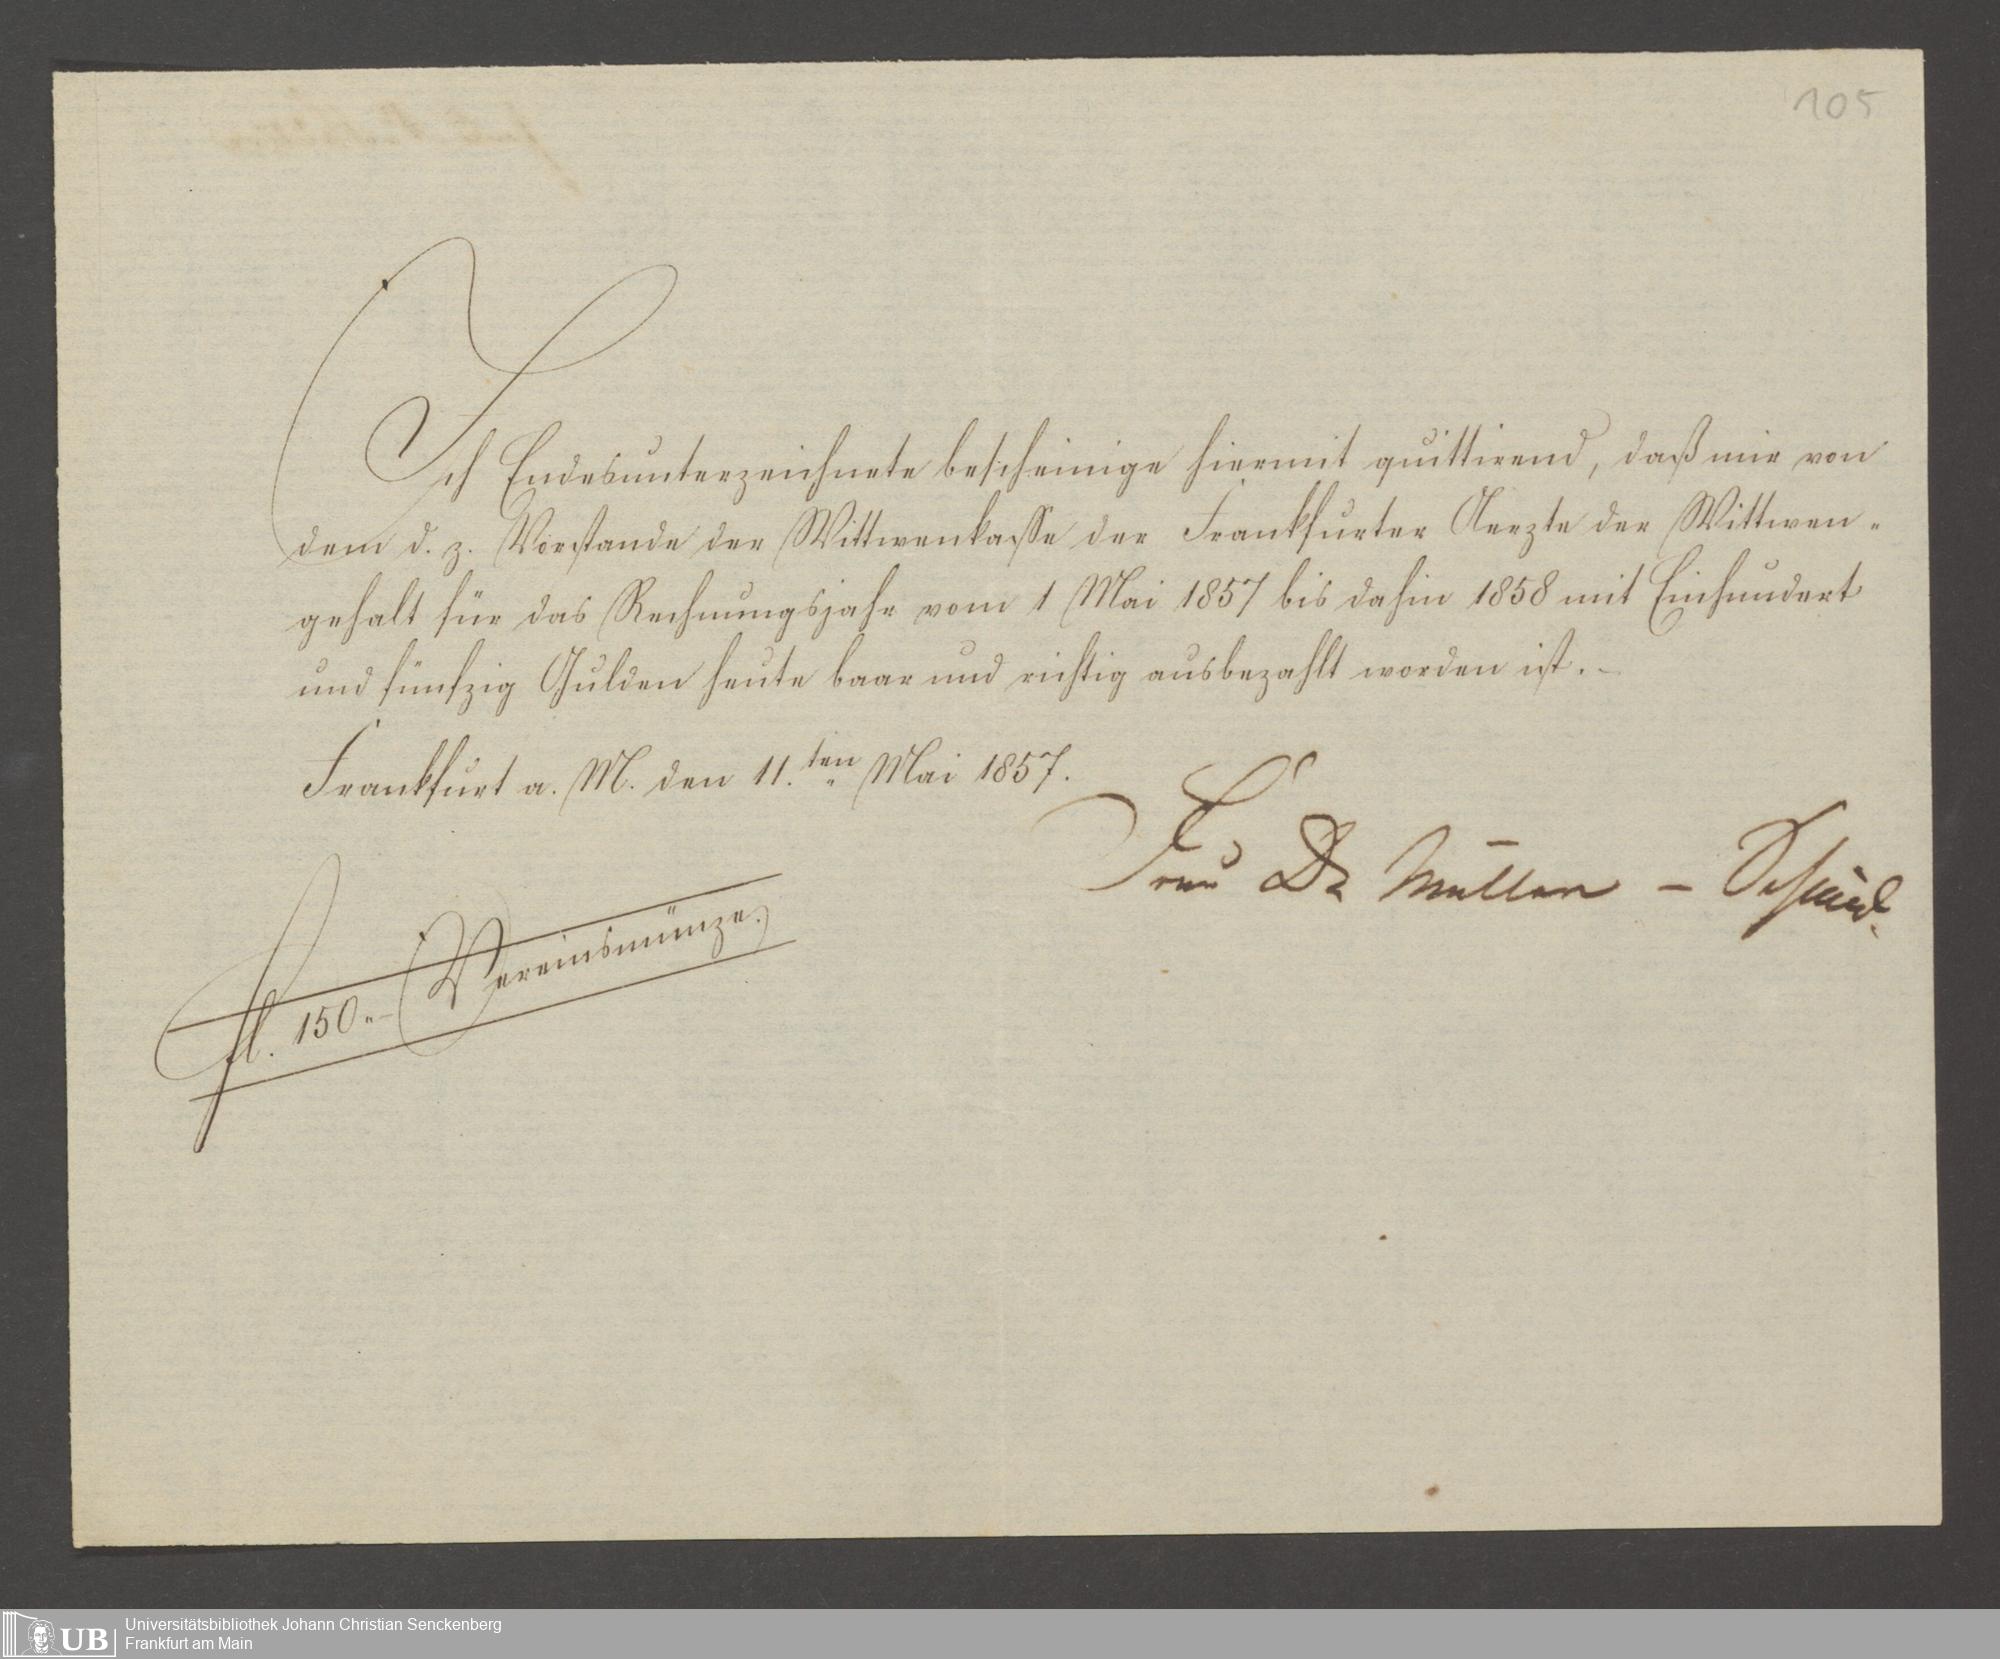 105
Ich Endesunterzeichnete bescheinige hiermit quittirend, daß mir von
dem d. z. Vorstande der Wittwenkasse der Frankfurter Aerzte der Wittwen-
gehalt für das Rechnungsjahr vom 1 Mai 1857 bis dahin 1858 mit Einhundert
und fünfzig Gulden heute baar und richtig ausbezahlt worden ist. -
Frankfurt a. M. den 11.ten Mai 1857.
Frau Dr Müller -
fl. 150.- Vereinsmünze.
UB
Universitätsbibliothek Johann Christian Senckenberg
Frankfurt am Main